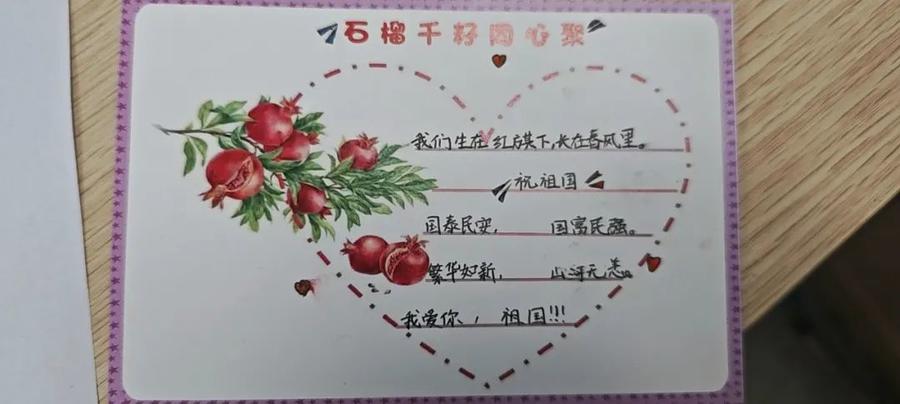 石榴千籽同心聚
我们生在红旗下,长在春风里。
祝祖国
国泰民安, 国富民强。
繁华如新, 山河无恙。
我爱你, 祖国!!!